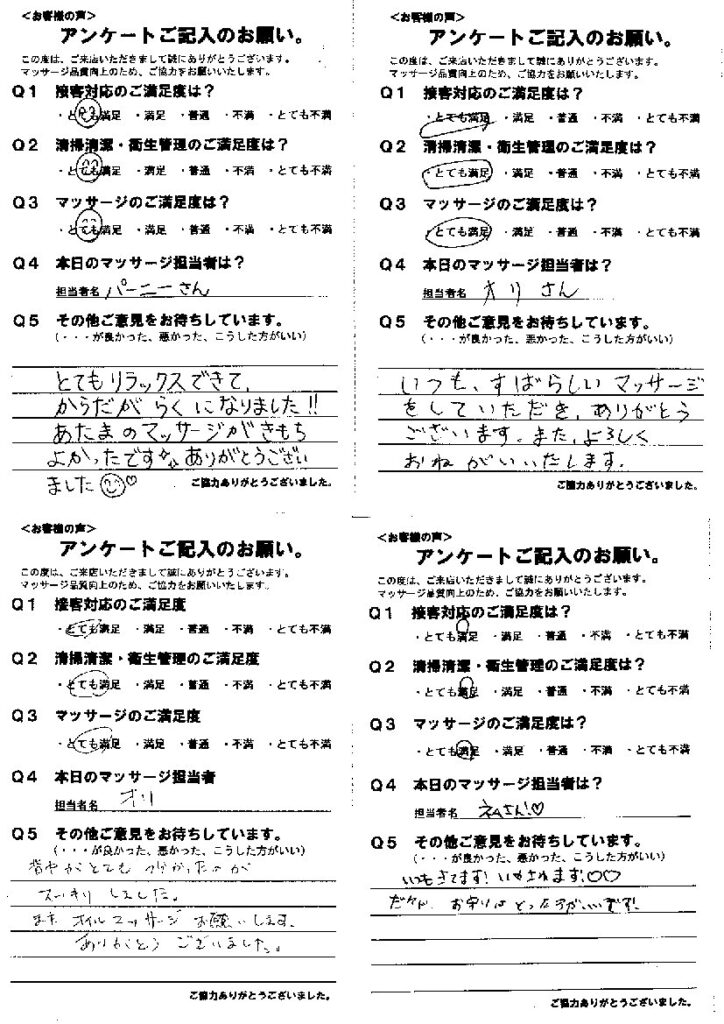 <お客様の声>
アンケートご記入のお願い。
この度は、ご来店いただきまして誠にありがとうございます。
マッサージ品質向上のため、ご協力をお願いいたします。
Q1 接客対応のご満足度は?
・とても満足 ・満足 ・普通 ・不満 ・とても不満
Q2 清掃清潔・衛生管理のご満足度は?
・とても満足 ・満足 ・普通 ・不満 ・とても不満
Q3 マッサージのご満足度は?
・とても満足 ・満足 ・普通 ・不満 ・とても不満
Q4 本日のマッサージ担当者は?
担当者名 パーニーさん
Q5 その他ご意見をお待ちしています。
(・・・が良かった、悪かった、こうした方がいい)
とてもリラックスできて、
からだが らくになりました!!
あたまのマッサージがきもち
よかったです。ありがとうござい
ました♡
ご協力ありがとうございました。
<お客様の声>
アンケートご記入のお願い。
この度は、ご来店いただきまして誠にありがとうございます。
マッサージ品質向上のため、ご協力をお願いいたします。
Q1 接客対応のご満足度は?
・とても満足 ・満足 ・普通 ・不満 ・とても不満
Q2 清掃清潔・衛生管理のご満足度は?
・とても満足 ・満足 ・普通 ・不満 ・とても不満
Q3 マッサージのご満足度は?
・とても満足 ・満足 ・普通 ・不満 ・とても不満
Q4 本日のマッサージ担当者は?
担当者名 オリ さん
Q5 その他ご意見をお待ちしています。
(・・・が良かった、悪かった、こうした方がいい)
いつも、すばらしい マッサージ
をしていただき、ありがとう
ございます。また、よろしく
おねがいいたします。
ご協力ありがとうございました。
<お客様の声>
アンケートご記入のお願い。
この度は、ご来店いただきまして誠にありがとうございます。
マッサージ品質向上のため、ご協力をお願いいたします。
Q1 接客対応のご満足度
・とても満足 ・満足 ・普通 ・不満 ・とても不満
Q2 清掃清潔・衛生管理のご満足度
・とても満足 ・満足 ・普通 ・不満 ・とても不満
Q3 マッサージのご満足度
・とても満足 ・満足 ・普通 ・不満 ・とても不満
Q4 本日のマッサージ担当者
担当者名 オリ
Q5 その他ご意見をお待ちしています。
(・・・が良かった、悪かった、こうした方がいい)
背中がとても
スッキリ しました。
また オイルマッサージ お願いします。
ありがとう ございました。
ご協力ありがとうございました。
<お客様の声>
アンケートご記入のお願い。
この度は、ご来店いただきまして誠にありがとうございます。
マッサージ品質向上のため、ご協力をお願いいたします。
Q1 接客対応のご満足度は?
・とても満足 ・満足 ・普通 ・不満 ・とても不満
Q2 清掃清潔・衛生管理のご満足度は?
・とても満足 ・満足 ・普通 ・不満 ・とても不満
Q3 マッサージのご満足度は?
・とても満足 ・満足 ・普通 ・不満 ・とても不満
Q4 本日のマッサージ担当者は?
担当者名 ネムさん!♡
Q5 その他ご意見をお待ちしています。
(・・・が良かった、悪かった、こうした方がいい)
いつもきてます! いやされます!♡♡
お守りは とった方がいいです!
ご協力ありがとうございました。